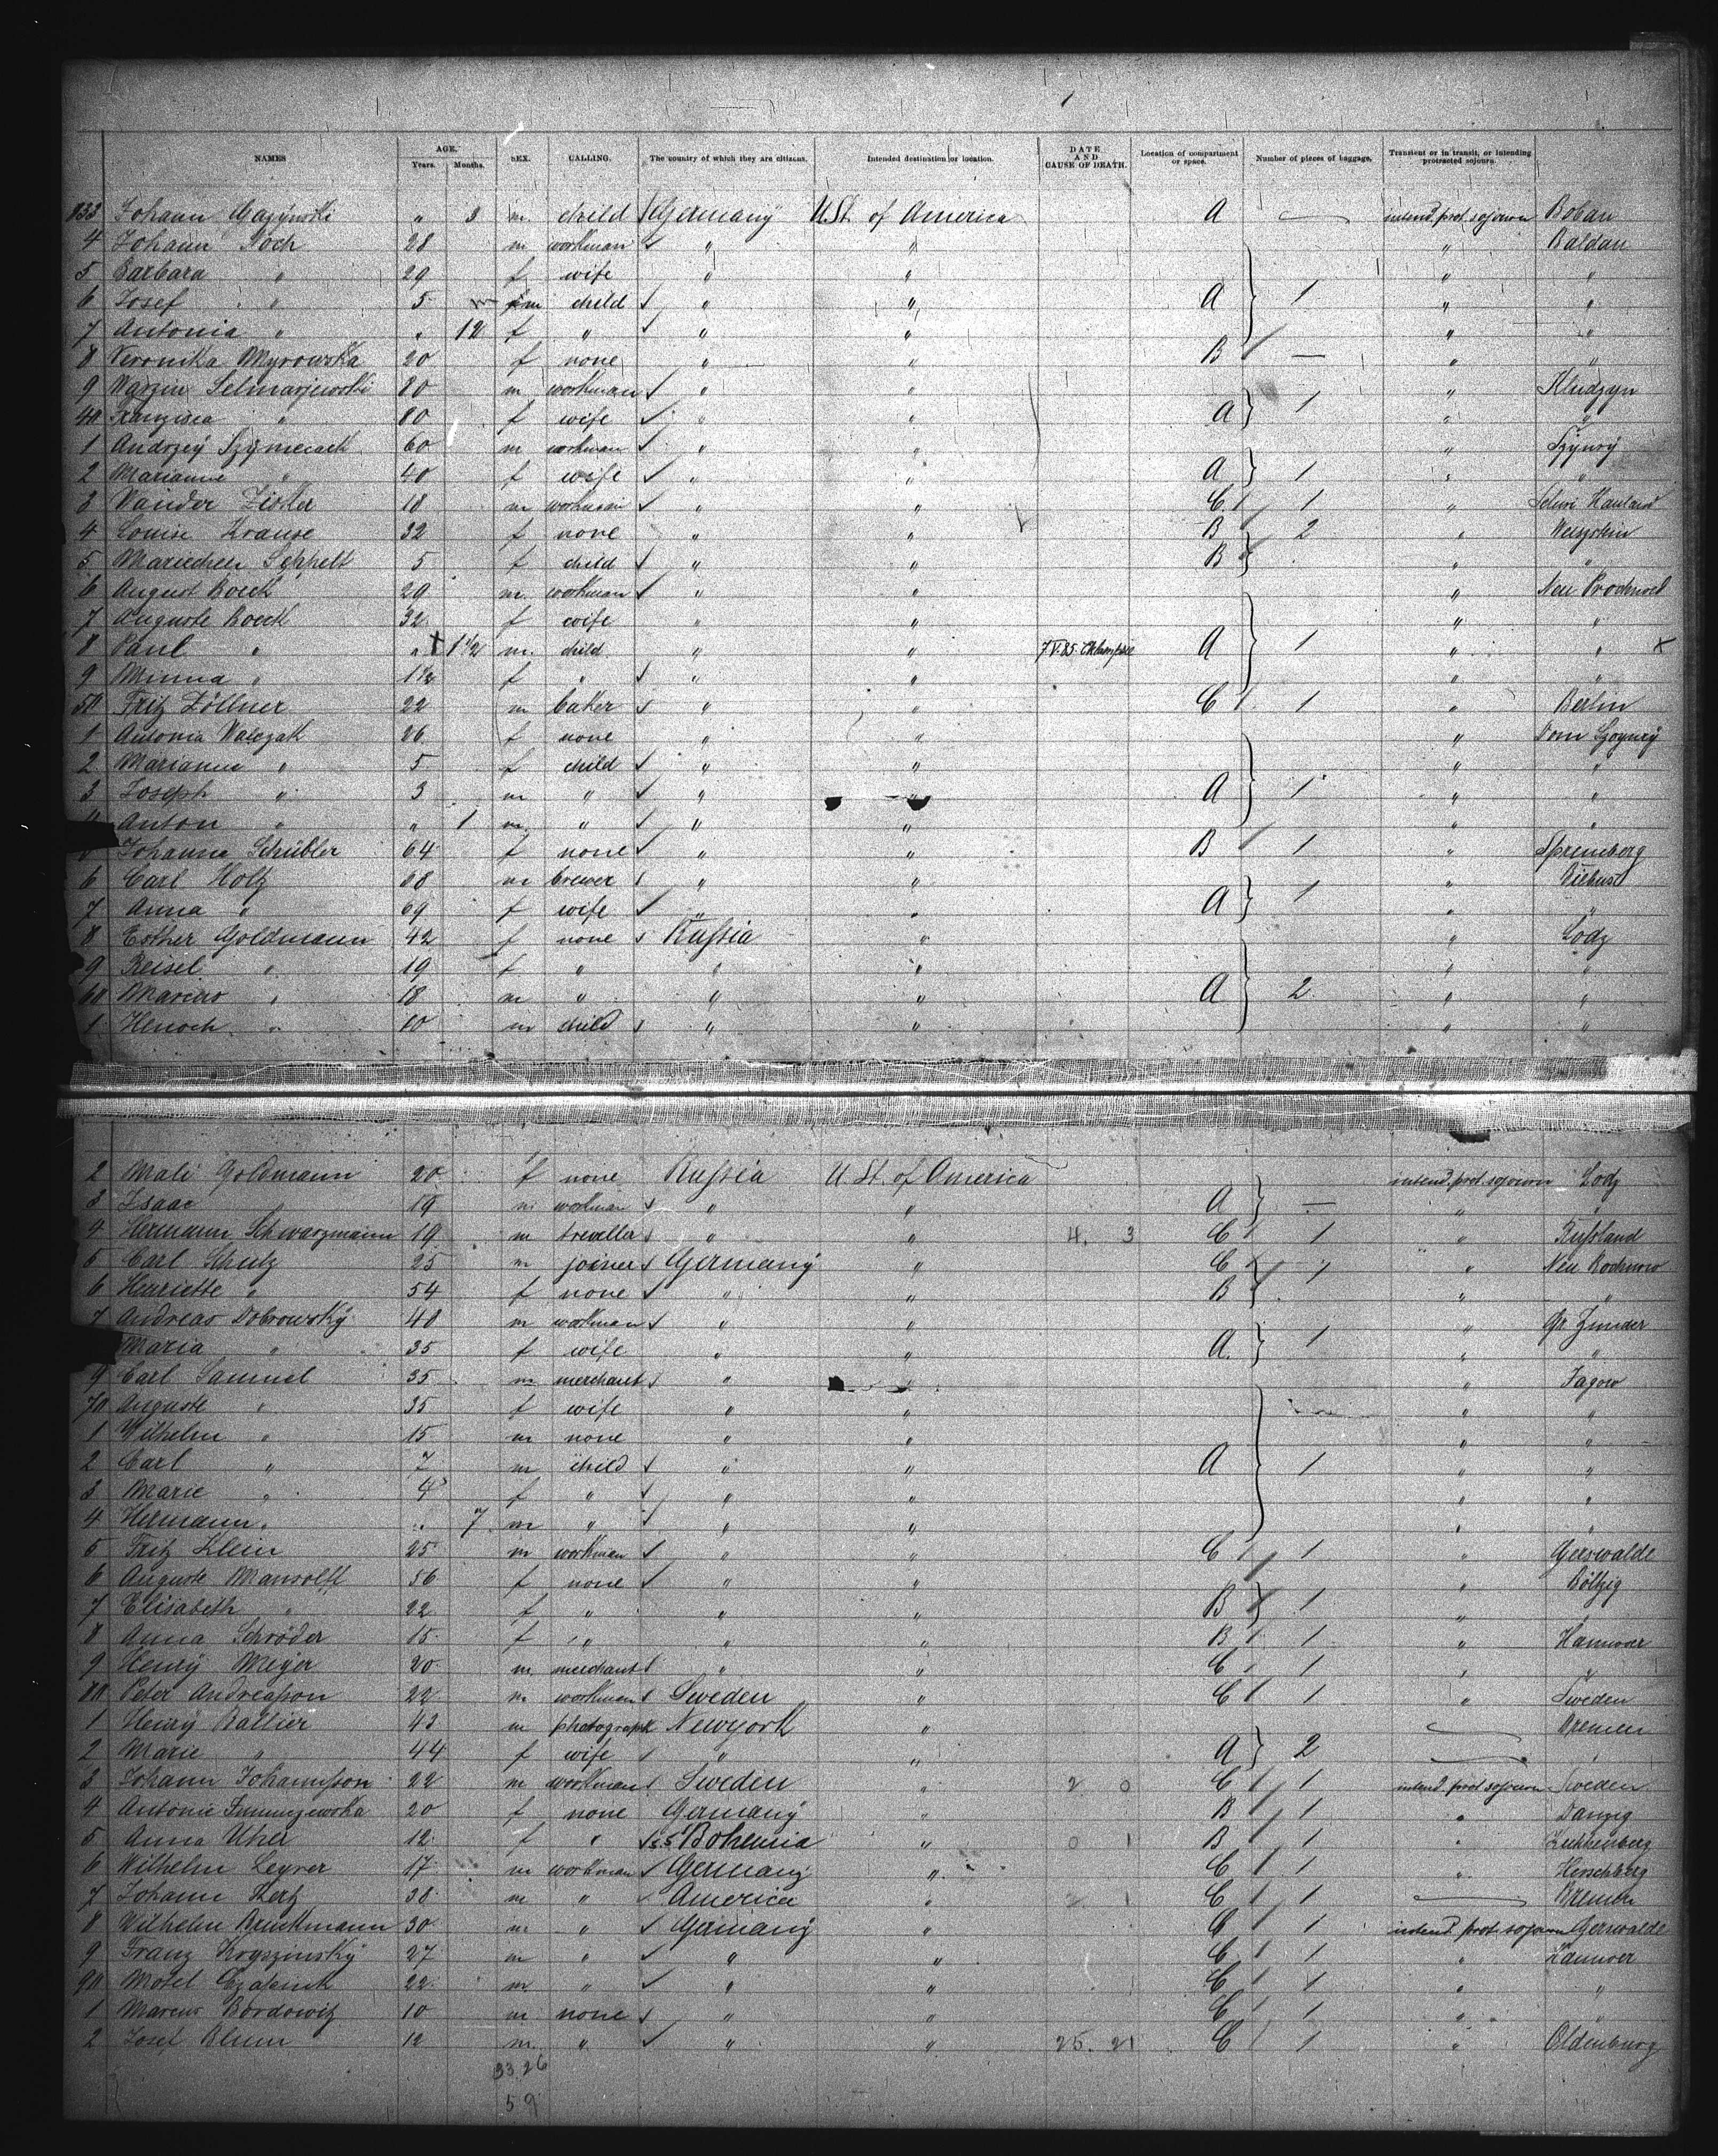 NAMES AGE. Years. Months. SEX. CALLING. The country of which they are citizens. Intended destination or location. DATE AND CAUSE OF DEATH. Location of compartment or space. Number of pieces of baggage. Transient or in transit, or intending protracted sojourn.
833 Johann " 3 m. child Germany U.St. of America A — intend. prot. sojourn Boban
4 Johann 28 m workman " " " Baldau
5 Barbara " 29 f wife " " " "
6 Josef " 5 m child " " A 1 " "
7 Antonia " " 12 f " " " " "
8 Veronika Myrowska 20 f none " " B — " "
9 80 m workman " " 1 " Kludzyn
40 Franzisca " 80 f wife " " A " "
1 Andrzey 60 m workman " " "
2 Marianne " 40 f wife " " A 1 " "
3 18 m workman " " C 1 "
4 Louise Krause 32 f none " " B 2 "
5 Mariechen 5 f child " " B " "
6 August Boeck 29 m. workman " " " Neu
7 Auguste Boeck 32 f wife " " " "
8 Paul " " † 1 1/2 m. child " " 7 V. 85. A 1 " " x
9 Minna " f " " " " "
50 Fritz Zöllner 22 m baker " " C 1 " Berlin
1 Antonia Walczak 26 f none " " " Dom
2 Marianne " 5 f child " " " "
3 Joseph " 3 m " " " A 1 " "
Anton " " 1 m " " " " "
Johanna Schübler 64 f none " " B 1 " Spremberg
6 Carl Holtz 68 m brewer " " 1
7 Anna " 69 f wife " " A " "
8 Esther Goldmann 42 f none Russia " " Lodz
9 Reisel " 19 f " " " " "
60 Marcus " 18 m " " " A 2 " "
1 Henoch " 10 m child " " " "
2 Mali Goldmann 20 f none Russia U St. of America intend. prot. sojourn Lodz
3 Isaac 19 m workman " " A — " "
4 Hermann Schwarzmann 19 m treveller " " 4. 3 C 1 " Russland
5 Carl Schulz 25 m joiner Germany " C 1 " Neu
6 Henriette " 54 f none " " B " "
7 Andreas Dobrowsky 40 m workman " " " Gr. Zünder
Maria " 35 f wife " " A. 1 " "
9 Carl Samuel 35 m merchant " " " Jagow
70 Auguste " 35 f wife " " " "
1 Wilhelm " 15 m none " " " "
2 Carl " 7 m child " " A 1 " "
3 Marie " 4 f " " " " "
4 Hermann " " 7 m " " " " "
5 Fritz Klein 25 m workman " " C 1 " Gerswalde
6 Auguste Mansolff 56 f none " " "
7 Elisabeth " 22 f " " " B 1 " "
8 Anna Schröder 15 f " " " B 1 " Hannover
9 Henry Meyer 20 m. merchant " " C 1 " "
80 Peter Andreasson 22 m workman Sweden " C 1 " Sweden
1 Henry Ballier 43 m photograph Newyork " — Bremen
2 Marie " 44 f wife " " A 2 — "
3 Johann Johannsson 22 m workman Sweden " 2 0 C 1 intend. prot. sojourn Sweden
4 Antonie 20 f none Germany " B 1 " Danzig
5 Anna Uher 12 f " Bohemia " 0 1 B 1 "
6 Wilhelm Leyrer 17 m workman Germany " C 1 " Hirschberg
7 Johann Hertz 38 m " America " 2 1 C 1 — Bremen
8 Wilhelm Brinkmann 30 m " Germany " C 1 intend. prot. sojourn Gerswalde
9 Franz Kryszinsky 27 m " " " C 1 " Hannover
90 Motel 22 m " " " C 1 " "
1 Marcus Bordowitz 10 m none " " C 1 " "
2 Josef Blum 12 m. " " " 25. 21 C 1 " Oldenburg
33 26
59